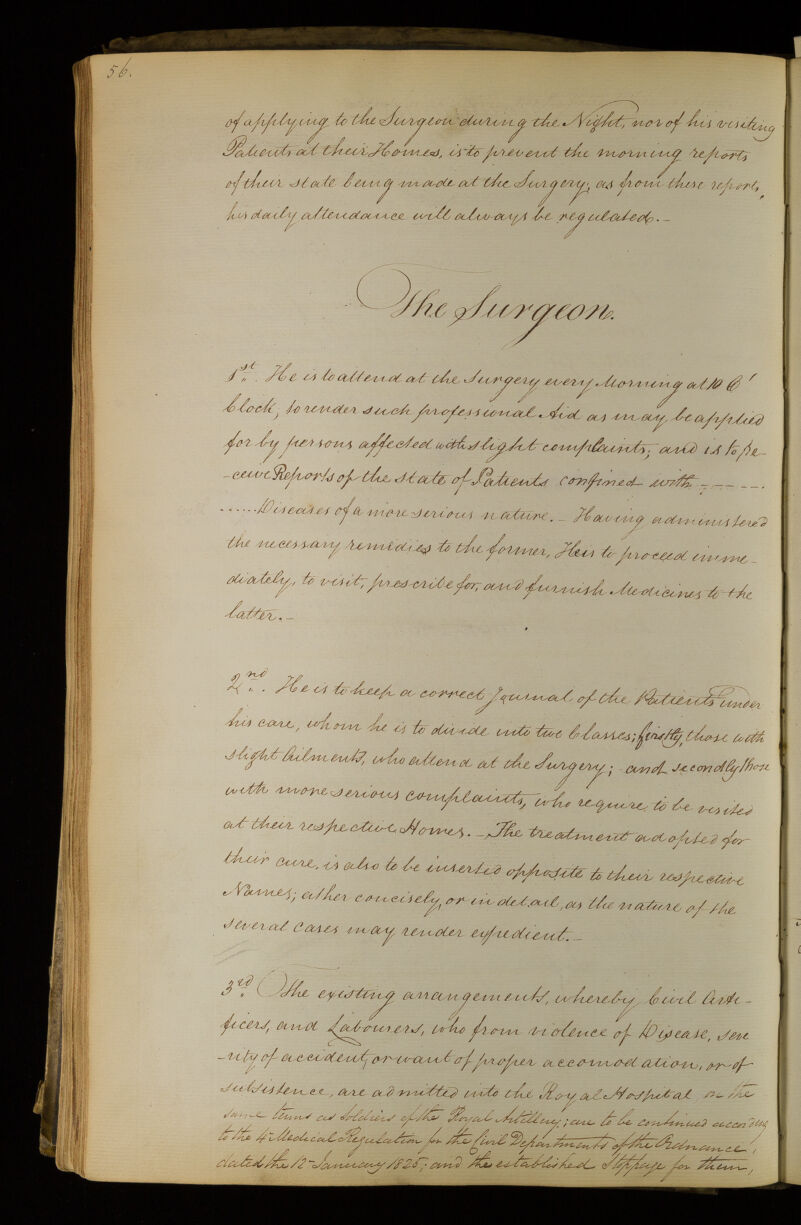 56.
of applying to the Surgeon during the Night, nor of his visiting
Patients at their Homes, is to prevent the morning reports
of their state being made at the Surgery; as from these reports,
his daily attendance will always be regulated.-
The Surgeon.
1st. He is to attend at the Surgery every Morning at 10 O'
Clock, to render such professional Aid as may be applied
for by persons affected with slight complaints; and is to re-
-ceive Reports of the state of Patients confined with - - - - -
......Diseases of a more serious nature.- Having administered
the necessary remedies to the former, He is to proceed imme-
diately, to visit, prescribe for, and furnish Medicines to the
latter.-
2nd. He is to keep a correct Journal of the Patients under
his care, whom he is to divide into two Classes; firstly, those with
slight Ailments, who attend at the Surgery; and secondly those
with more serious complaints, who require to be visited
at their respective Homes.- The treatment adopted for
their cure, is also to be inserted opposite to their respective
Names; either concisely, or in detail, as the nature of the
several cases may render expedient.-
3rd. The existing arrangements, whereby Civil Arti-
ficers, and Labourers, who from violence of Disease, seve
-rity of accident, or want of proper accomodation, or of
subsistence, are admitted into the Royal Hospital on the
same terms as Soldiers of the Royal Artillery; are to be continued according
to the 4th Medical Regulation for the Civil Departments of the Ordnance,
dated the 12th January 1825; and the established Stoppage for them,